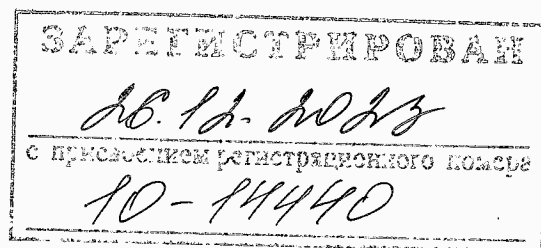 ЗАРЕГИСТРИРОВАН
26.12.2023
с присвоением регистрационного номера
10-14440